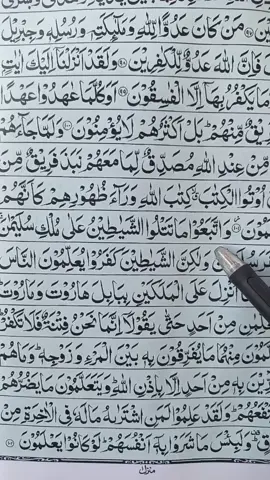 مَنْ كَانَ عَدُوًّا لِّلّٰهِ وَمَلٰٓئِكَتِهٖ وَرُسُلِهٖ وَجِبْرِيْلَ
فَاِنَّ اللّٰهَ عَدُوٌّ لِّلْكٰفِرِيْنَ ۝۹۸ وَلَقَدْ اَنْزَلْنَآ اِلَيْكَ اٰيٰتٍ
مَا يَكْفُرُ بِهَآ اِلَّا الْفٰسِقُوْنَ ۝۹۹ اَوَكُلَّمَا عٰهَدُوْا عَهْدًا
رِيْقٌ مِّنْهُمْ ؕ بَلْ اَكْثَرُهُمْ لَا يُؤْمِنُوْنَ ۝۱۰۰ وَلَمَّا جَآءَهُمْ
مِّنْ عِنْدِ اللّٰهِ مُصَدِّقٌ لِّمَا مَعَهُمْ نَبَذَ فَرِيْقٌ مِّنَ
اُوْتُوا الْكِتٰبَ ۙ كِتٰبَ اللّٰهِ وَرَآءَ ظُهُوْرِهِمْ كَاَنَّهُمْ
مُوْنَ ۝۱۰۱ وَاتَّبَعُوْا مَا تَتْلُوا الشَّيٰطِيْنُ عَلٰى مُلْكِ سُلَيْمٰنَ
وَلٰكِنَّ الشَّيٰطِيْنَ كَفَرُوْا يُعَلِّمُوْنَ النَّاسَ
اُنْزِلَ عَلَى الْمَلَكَيْنِ بِبَابِلَ هَارُوْتَ وَمَارُوْتَ
لِّمٰنِ مِنْ اَحَدٍ حَتّٰى يَقُوْلَآ اِنَّمَا نَحْنُ فِتْنَةٌ فَلَا تَكْفُرْ
مُوْنَ مِنْهُمَا مَا يُفَرِّقُوْنَ بِهٖ بَيْنَ الْمَرْءِ وَزَوْجِهٖ ؕ وَمَا هُمْ
رِّيْنَ بِهٖ مِنْ اَحَدٍ اِلَّا بِاِذْنِ اللّٰهِ ؕ وَيَتَعَلَّمُوْنَ مَا يَضُرُّهُمْ
فَعُهُمْ ؕ وَلَقَدْ عَلِمُوْا لَمَنِ اشْتَرٰىهُ مَا لَهٗ فِى الْاٰخِرَةِ مِنْ
قٍ ؕ وَلَبِئْسَ مَا شَرَوْا بِهٖٓ اَنْفُسَهُمْ ؕ لَوْ كَانُوْا يَعْلَمُوْنَ ۝۱۰۲
منزل